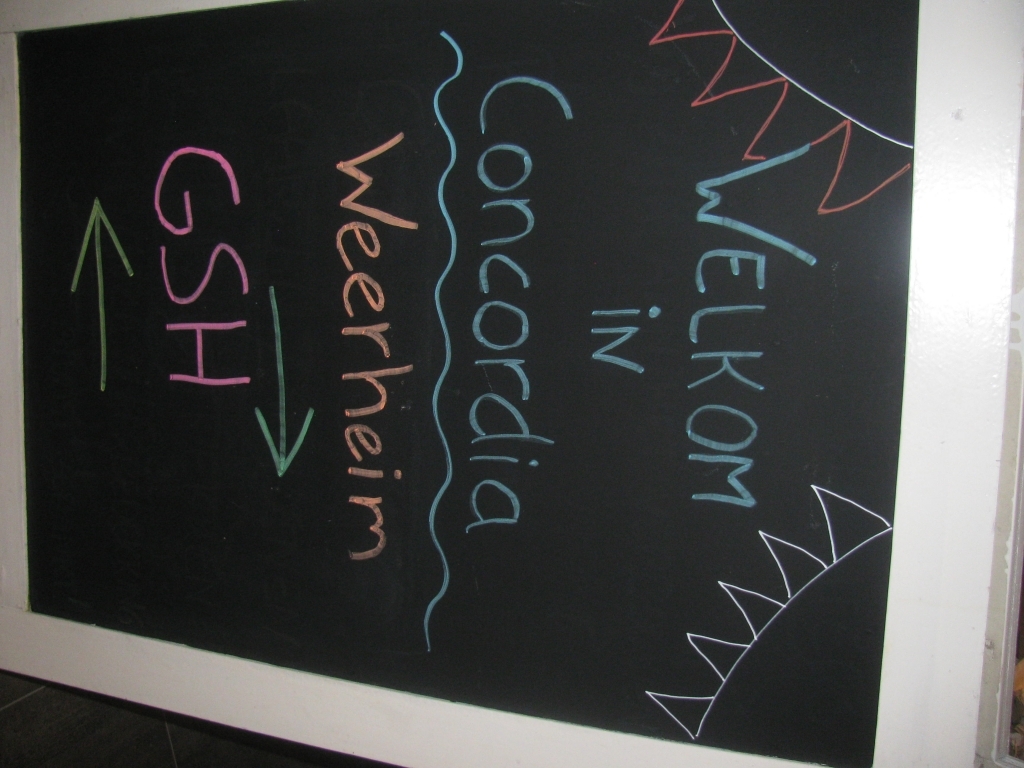 WELKOM
in
Concordia
Weerheim
→
GSH
←